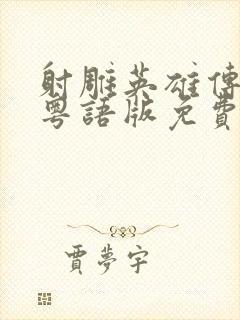 射雕英雄傳
粵語版免費
賈夢宇